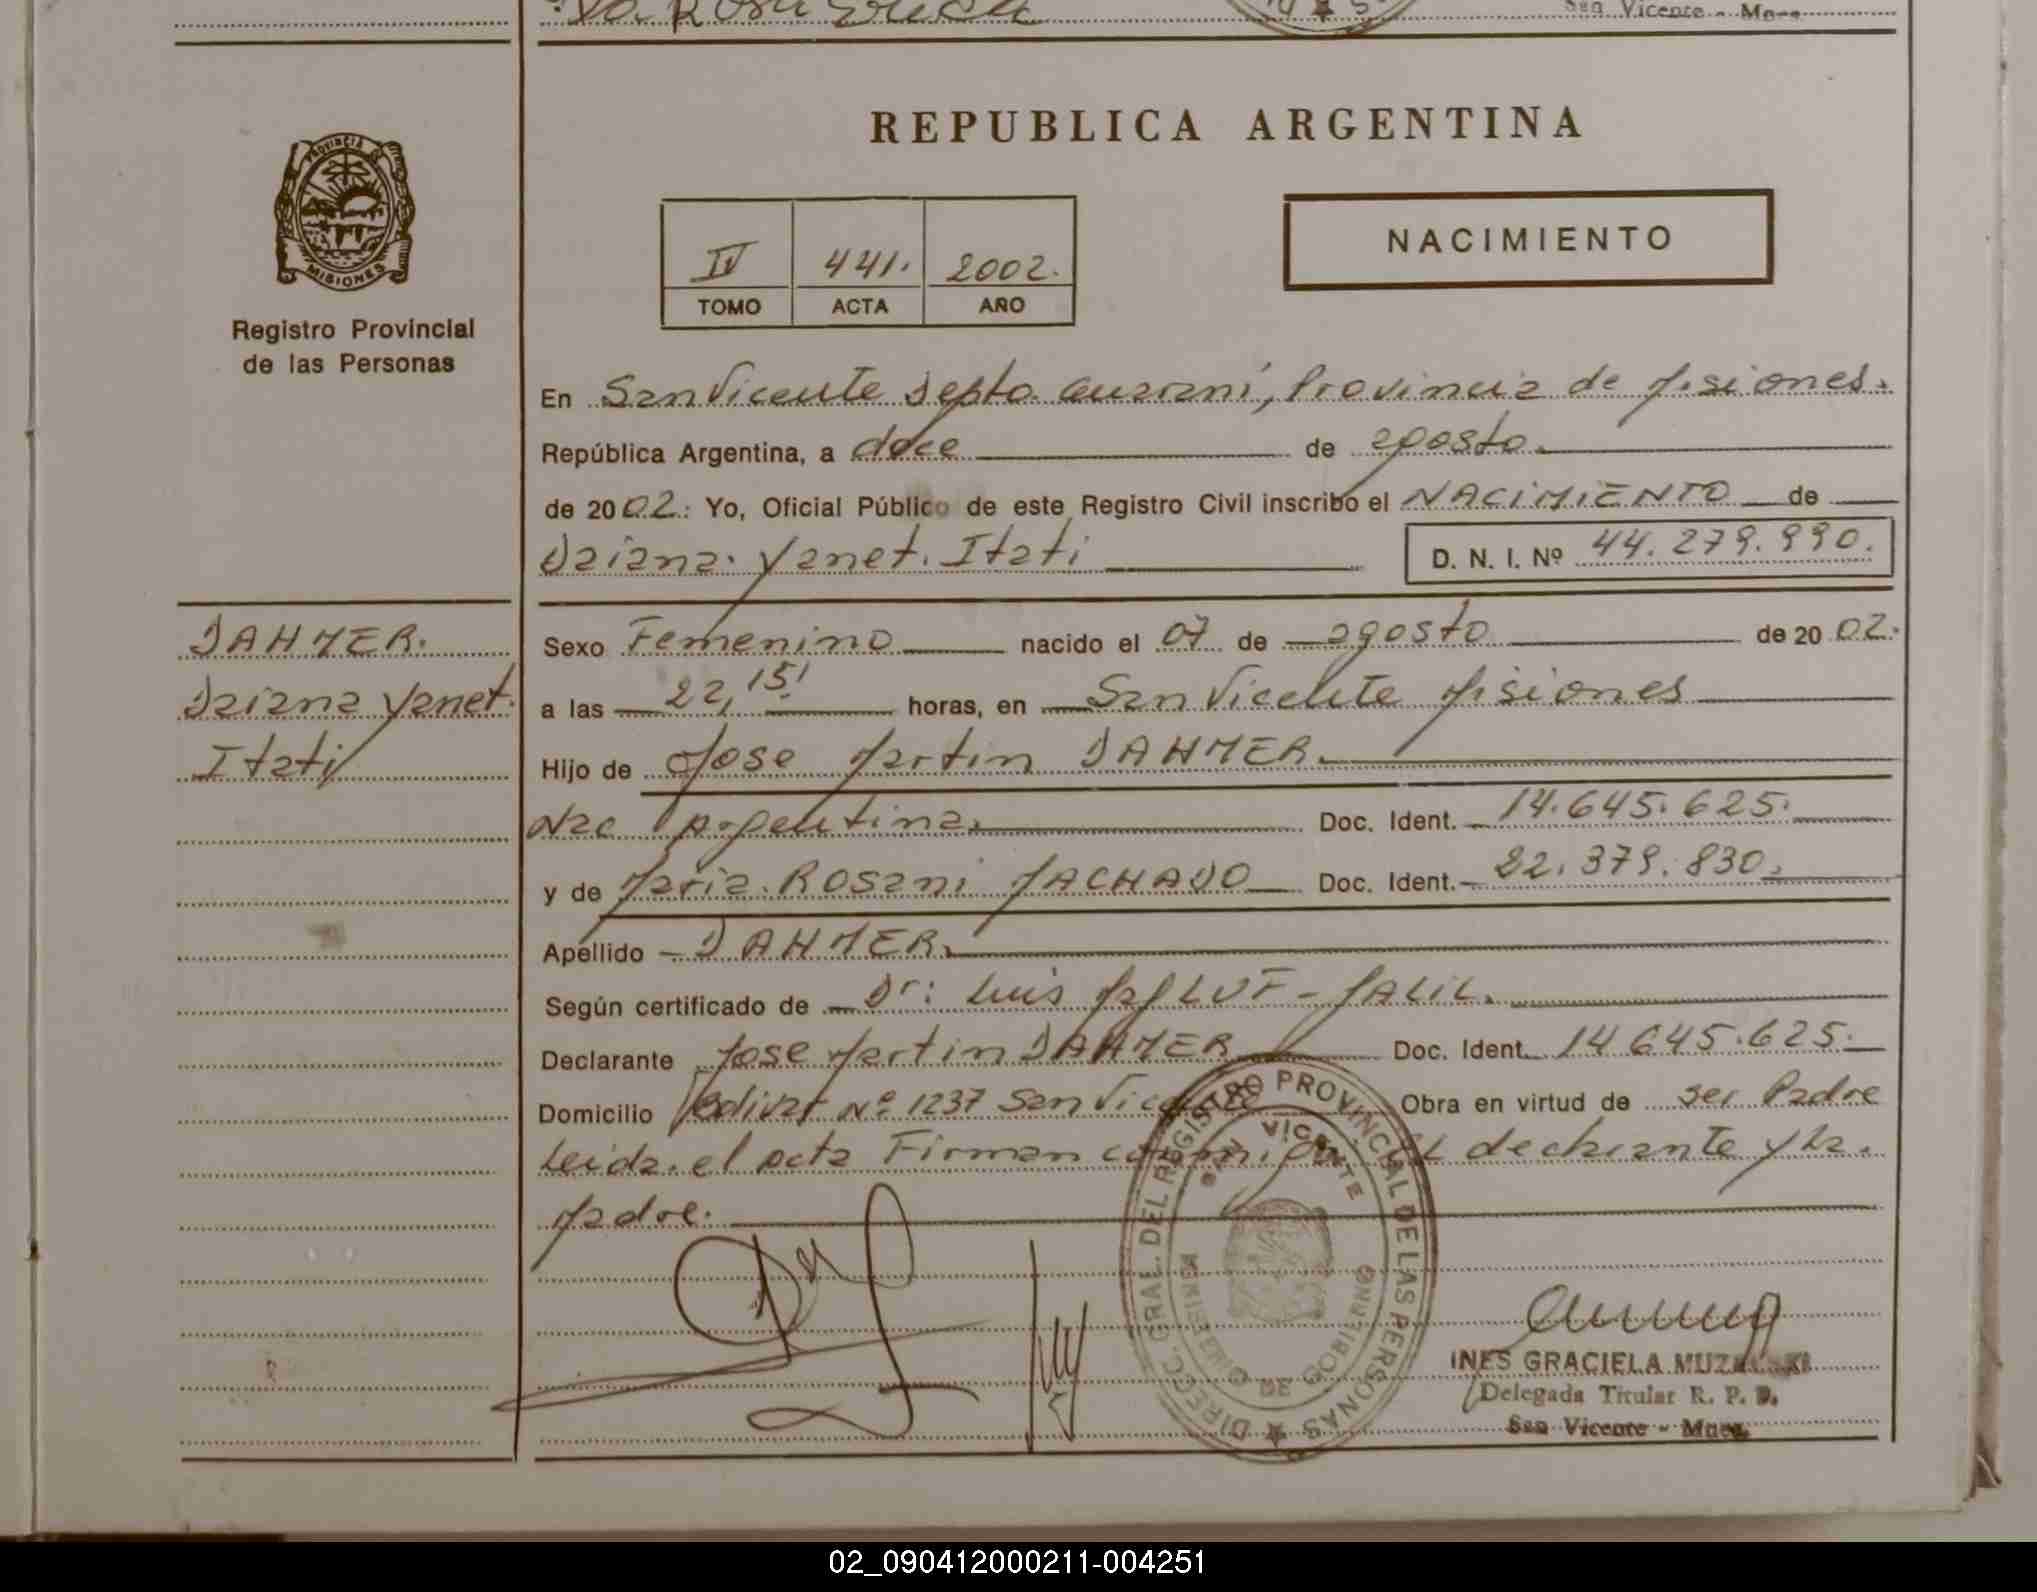 Da Rosa Erica
San Vicente - Mnes.
REPUBLICA ARGENTINA
PROVINCIA DE MISIONES
Registro Provincial
de las Personas
IV 441. 2002.
TOMO ACTA AÑO
NACIMIENTO
En San Vicente Depto. Guarani, Provincia de Misiones.
República Argentina, a doce de agosto
de 2002: Yo, Oficial Público de este Registro Civil inscribo el NACIMIENTO de
Daiana. Yanet. Itati D. N. I. Nº 44.279.990.
DAHMER.
Daiana Yanet.
Itati
Sexo Femenino nacido el 07 de agosto de 2002.
a las 22,15' horas, en San Vicente Misiones
Hijo de Jose Martin DAHMER.
Nac Argentina. Doc. Ident. 14.645.625.
y de Maria. Rosani MACHADO Doc. Ident. 22.379.830.
Apellido DAHMER.
Según certificado de Dr: Luis MALIL.
Declarante Jose Martin DAHMER Doc. Ident. 14.645.625.
Domicilio Nº 1237 San Vicente Obra en virtud de ser Padre
Leida. el acta Firman conmigo el declarante y La.
Madre.
DIRECC. GRAL. DEL REGISTRO PROVINCIAL DE LAS PERSONAS
SAN VICENTE
MINISTERIO DE GOBIERNO
INES GRACIELA
Delegada Titular R. P. P.
San Vicente - Mnes.
02_090412000211-004251